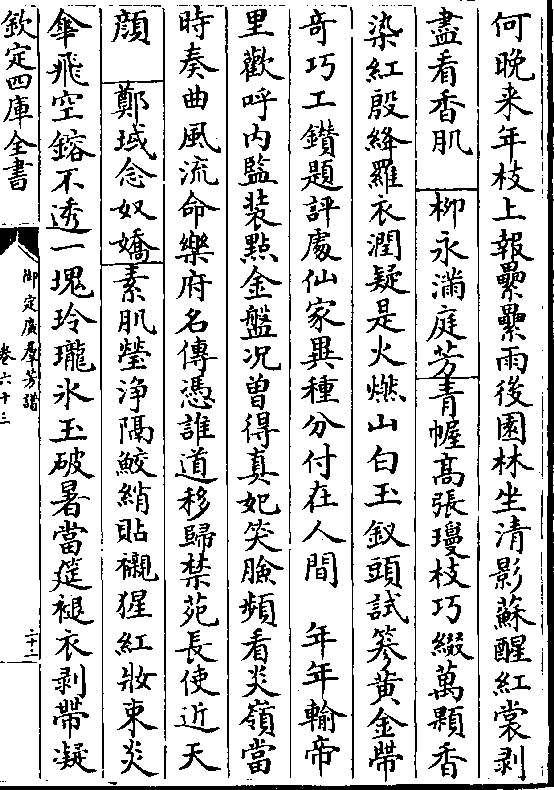 何晚来年枝上報纍纍雨後園林坐清影蘇醒紅裳剥
盡看香肌　柳永滿庭芳青幄髙張瓊枝巧綴萬顆香
染紅殷絳羅衣潤疑是火燃山白玉釵頭試篸黄金帶
竒巧工鑽題評處仙家異種分付在人間　年年輸帝
里歡呼内監裝㸃金盤况曽得真妃笑臉頻看炎嶺當
時奏曲風流命樂府名傳憑誰道移歸禁苑長使近天
顔　鄭域念奴嬌素肌瑩浄隔鮫綃貼襯猩紅妝束炎
傘飛空鎔不透一塊玲瓏氷玉破暑當筵褪衣剥帶凝
欽定四庫全書
御定廣羣芳譜
卷六十三